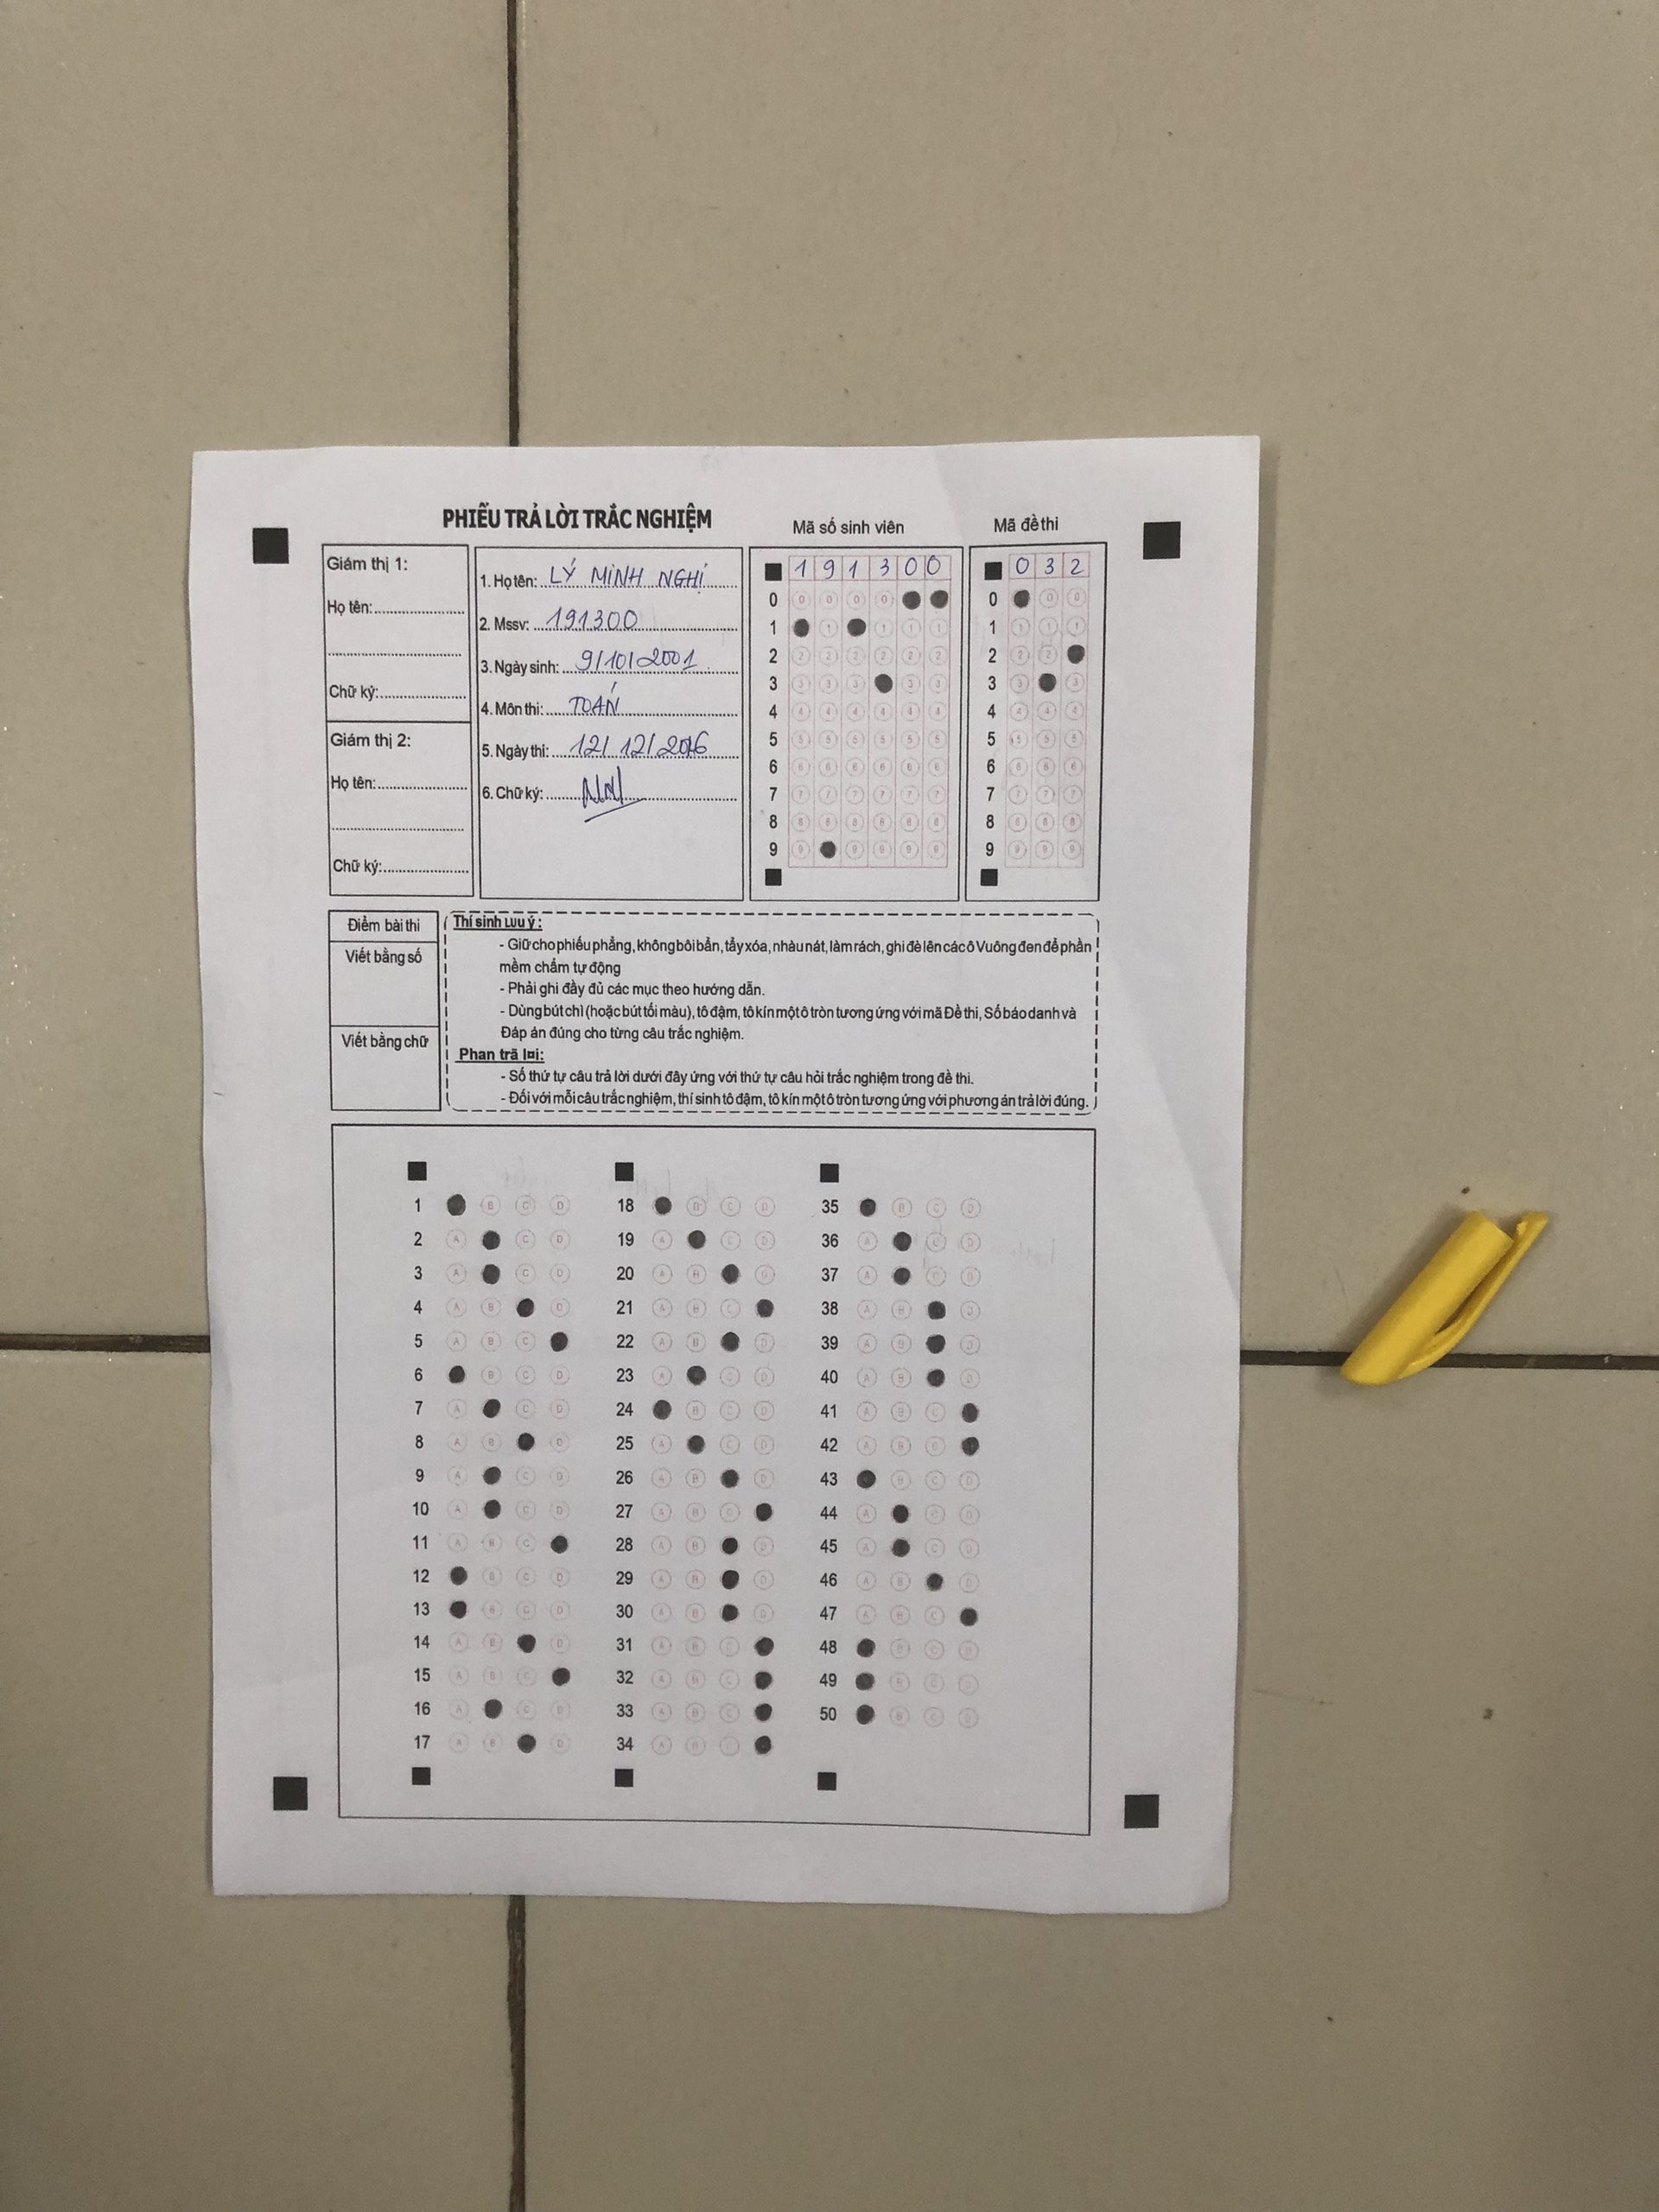 PHIẾU TRẢ LỜI TRẮC NGHIỆM
Mã số sinh viên
Mã đề thi
Giám thị 1:
Họ tên:
Chữ ký:
Giám thị 2:
Họ tên:
Chữ ký:
1. Họ tên: LÝ MINH NGHỊ
2. Mssv: 191300
3. Ngày sinh: 9/10/2001
4. Môn thi: TOÁN
5. Ngày thi: 12/12/2016
6. Chữ ký:
1 9 1 3 0 0
0 0 0 0 0
1 1 1 1 1
2 2 2 2 2 2 2
3 3 3 3 3 3
4 4 4 4 4 4 4
5 5 5 5 5 5 5
6 6 6 6 6 6 6
7 7 7 7 7 7 7
8 8 8 8 8 8 8
9 9 9 9 9 9
0 3 2
0 0 0
1 1 1 1
2 2 2
3 3 3
4 4 4 4
5 5 5 5
6 6 6 6
7 7 7 7
8 8 8 8
9 9 9 9
Điểm bài thi
Viết bằng số
Viết bằng chữ
Thí sinh Lưu ý:
- Giữ cho phiếu phẳng, không bôi bẩn, tẩy xóa, nhàu nát, làm rách, ghi đè lên các ô Vuông đen để phần
mềm chấm tự động
- Phải ghi đầy đủ các mục theo hướng dẫn.
- Dùng bút chì (hoặc bút tối màu), tô đậm, tô kín một ô tròn tương ứng với mã Đề thi, Số báo danh và
Đáp án đúng cho từng câu trắc nghiệm.
Phan trã lơi:
- Số thứ tự câu trả lời dưới đây ứng với thứ tự câu hỏi trắc nghiệm trong đề thi.
- Đối với mỗi câu trắc nghiệm, thí sinh tô đậm, tô kín một ô tròn tương ứng với phương án trả lời đúng.
1 B C D
2 A C D
3 A C D
4 A B D
5 A B C
6 B C D
7 A C D
8 A B D
9 A C D
10 A C D
11 A B C
12 B C D
13 B C D
14 A B D
15 A B C
16 A C D
17 A B D
18 B C D
19 A C D
20 A B D
21 A B C
22 A B D
23 A C D
24 B C D
25 A C D
26 A B D
27 A B C
28 A B D
29 A B D
30 A B D
31 A B C
32 A B C
33 A B C
34 A B C
35 B C D
36 A C D
37 A C D
38 A B D
39 A B D
40 A B D
41 A B C
42 A B C
43 B C D
44 A C D
45 A C D
46 A B D
47 A B C
48 B C D
49 B C D
50 B C D